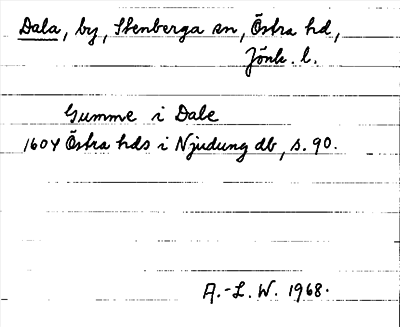 Dala, by, Stenberga sn, Östra hd,
Jönk. l.
Gumme i Dale
1604 Östra hds i Njudung db, s. 90.
A.-L. W. 1968.